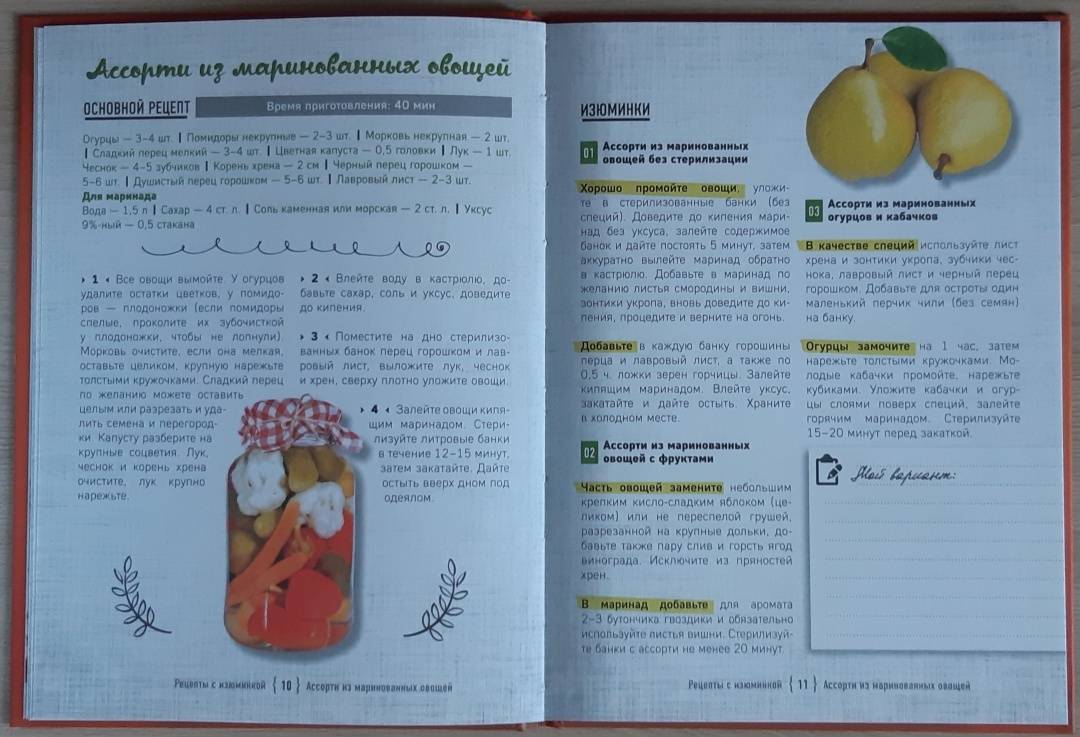 Ассорти из маринованных овощей
ОСНОВНОЙ РЕЦЕПТ
Время приготовления: 40 мин
Огурцы — 3–4 шт. | Помидоры некрупные — 2–3 шт. | Морковь некрупная — 2 шт.
| Сладкий перец мелкий — 3–4 шт. | Цветная капуста — 0,5 головки | Лук — 1 шт.
Чеснок — 4–5 зубчиков | Корень хрена — 2 см | Черный перец горошком —
5–6 шт. | Душистый перец горошком — 5–6 шт. | Лавровый лист — 2–3 шт.
Для маринада
Вода — 1,5 л | Сахар — 4 ст. л. | Соль каменная или морская — 2 ст. л. | Уксус
9%-ный — 0,5 стакана
› 1 ‹ Все овощи вымойте. У огурцов
удалите остатки цветков, у помидо-
ров — плодоножки (если помидоры
спелые, проколите их зубочисткой
у плодоножки, чтобы не лопнули).
Морковь очистите, если она мелкая,
оставьте целиком, крупную нарежьте
толстыми кружочками. Сладкий перец
по желанию можете оставить
целым или разрезать и уда-
лить семена и перегород-
ки. Капусту разберите на
крупные соцветия. Лук,
чеснок и корень хрена
очистите, лук крупно
нарежьте.
› 2 ‹ Влейте воду в кастрюлю, до-
бавьте сахар, соль и уксус, доведите
до кипения.
› 3 ‹ Поместите на дно стерилизо-
ванных банок перец горошком и лав-
ровый лист, выложите лук, чеснок
и хрен, сверху плотно уложите овощи.
› 4 ‹ Залейте овощи кипя-
щим маринадом. Стери-
лизуйте литровые банки
в течение 12–15 минут,
затем закатайте. Дайте
остыть вверх дном под
одеялом.
Рецепты с изюминкой { 10 } Ассорти из маринованных овощей
ИЗЮМИНКИ
01 Ассорти из маринованных
овощей без стерилизации
Хорошо промойте овощи, уложи-
те в стерилизованные банки (без
специй). Доведите до кипения мари-
над без уксуса, залейте содержимое
банок и дайте постоять 5 минут, затем
аккуратно вылейте маринад обратно
в кастрюлю. Добавьте в маринад по
желанию листья смородины и вишни,
зонтики укропа, вновь доведите до ки-
пения, процедите и верните на огонь.
Добавьте в каждую банку горошины
перца и лавровый лист, а также по
0,5 ч. ложки зерен горчицы. Залейте
кипящим маринадом. Влейте уксус,
закатайте и дайте остыть. Храните
в холодном месте.
02 Ассорти из маринованных
овощей с фруктами
Часть овощей замените небольшим
крепким кисло-сладким яблоком (це-
ликом) или не переспелой грушей,
разрезанной на крупные дольки, до-
бавьте также пару слив и горсть ягод
винограда. Исключите из пряностей
хрен.
В маринад добавьте для аромата
2–3 бутончика гвоздики и обязательно
используйте листья вишни. Стерилизуй-
те банки с ассорти не менее 20 минут.
03 Ассорти из маринованных
огурцов и кабачков
В качестве специй используйте лист
хрена и зонтики укропа, зубчики чес-
нока, лавровый лист и черный перец
горошком. Добавьте для остроты один
маленький перчик чили (без семян)
на банку.
Огурцы замочите на 1 час, затем
нарежьте толстыми кружочками. Мо-
лодые кабачки промойте, нарежьте
кубиками. Уложите кабачки и огур-
цы слоями поверх специй, залейте
горячим маринадом. Стерилизуйте
15–20 минут перед закаткой.
Мой вариант:
Рецепты с изюминкой { 11 } Ассорти из маринованных овощей